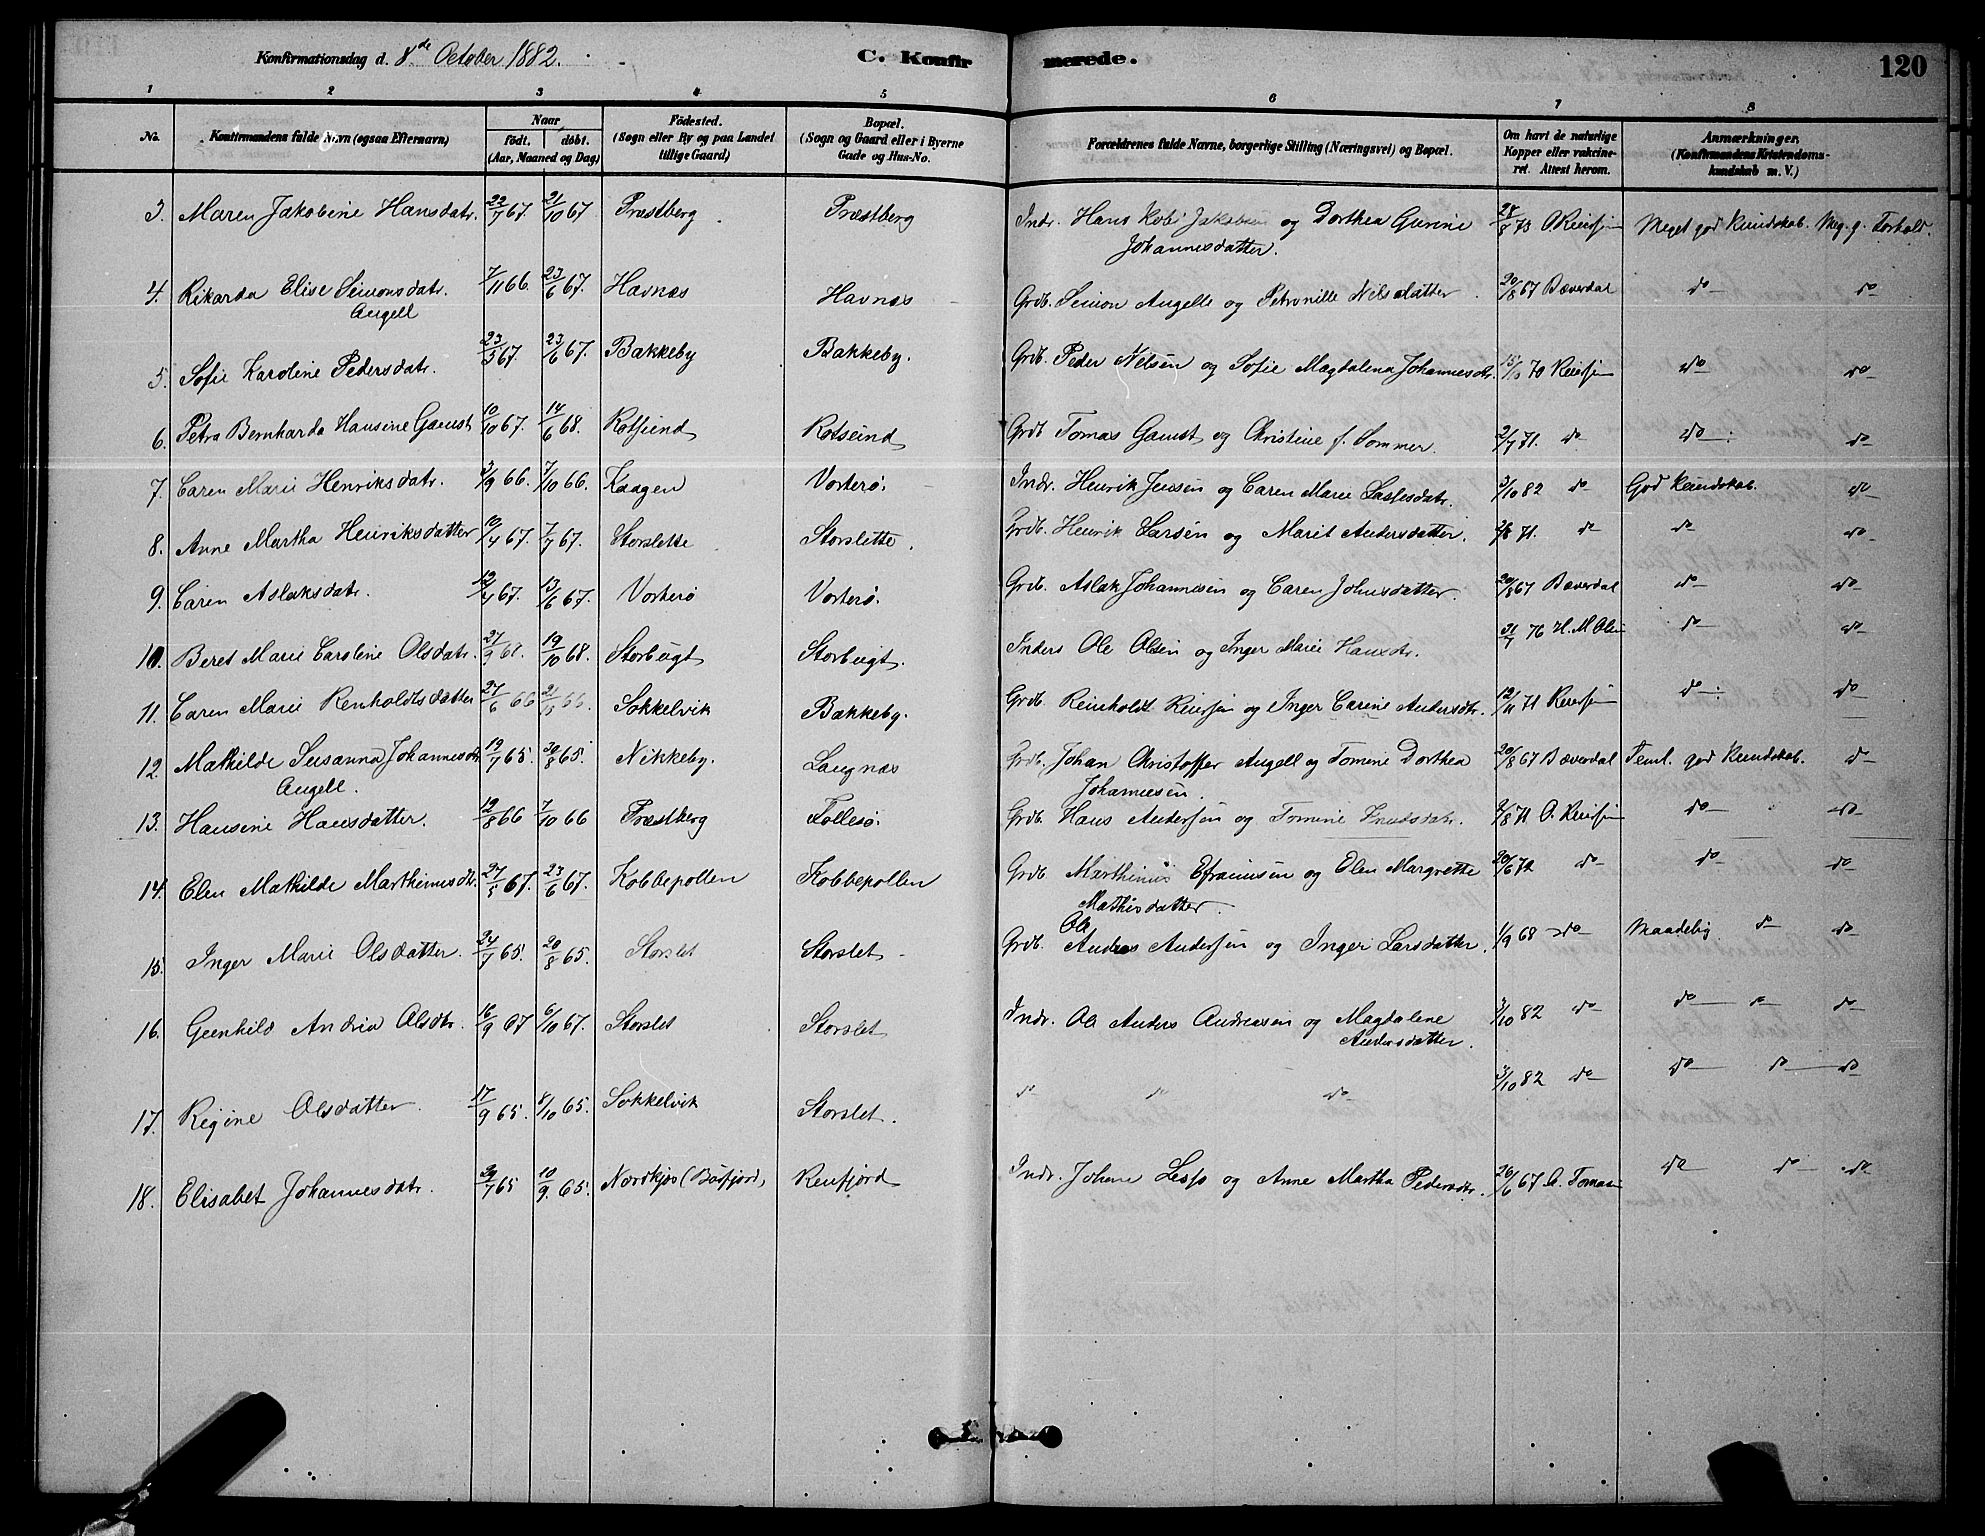 Konfirmationsdag d. 8de October 1882. C. Konfirmerede. 120
1 2 3 4 5 6 7 8
No. Konfirmandens fulde Navn (ogsaa Efternavn) Naar født. døbt. (Aar, Maaned og Dag) Fødested. (Sogn eller By og paa Landet tillige Gaard) Bopæl. (Sogn og Gaard eller i Byerne Gade og Hus-No. Forældrenes fulde Navne, borgerlige Stilling (Næringsvei) og Bopæl. Om havt de naturlige Kopper eller vakcineret. Attest herom. Anmærkninger. (Konfirmandens Kristendomskundskab m. V.)
3. Maren Jakobine Hansdatr. 22/7 67. 21/10 67. Præstberg Præstberg Indr. Hans Jakobsen og Dorthea Gurine 28/8 73 O Reiersen Meget god Kundskab. Meg. g. Forhold.
Johannesdatter.
4. Rikarda Elise Simonsdatr. 7/11 66. 23/6 67. Havnæs Havnæs Grdb. Simon Angelle og Petronille Nilsdatter 20/8 67 Bæverdal do do
Angell
5. Sofie Karoline Pedersdatr. 23/3 67. 23/6 67. Bakkeby Bakkeby. Grdb. Peder Nilsen og Sofie Magdalena Johannesdtr. 15/10 70 Reiersen do do
6. Petra Bernharda Hansine Gamst 10/10 67. 14/6 68. Rotsund Rotsund Grdb Tomas Gamst og Christine f. Sommer. 2/7 71. do do do
7. Caren Marie Henriksdatr. 3/9 66. 7/10 66. Kaagen Vorterø. Indr. Henrik Jensen og Caren Marie Lassesdatr. 3/10 82 do God Kundskab. do
8. Anne Martha Henriksdatter 10/4 67. 7/7 67. Storslette Storslette. Grdb. Henrik Larsen og Marit Andersdatter. 2/8 71. do do do
9. Caren Aslaksdatr. 12/4 67. 13/6 67. Vorterø Vorterø. Grdb. Aslak Johannesen og Caren Johnsdatter. 20/8 67 Bæverdal do do
10. Beret Marie Caroline Olsdatr. 27/9 68. 19/10 68. Storbugt Storbugt. Inders Ole Olsen og Inger Marie Hansdtr. 31/7 76 H. M. Olsen do do
11. Caren Marie Renholdtsdatter 27/6 66 Sokkelvik Bakkeby. Grdb. Reinholdt Reiersen og Inger Carine Andersdtr. 12/11 71 Reiersen do do
12. Mathilde Susanna Johannesdtr 19/7 65. 20/8 65. Nikkeby. Laugnæs Grdb. Johan Christoffer Angell og Tomine Dorthea 20/8 67 Bæverdal Teml. god Kundskab. do
Angell. Johannesen.
13. Hansine Hansdatter. 12/8 66 7/10 66 Præstberg Follesø. Grdb. Hans Andersen og Tomine Knudsdatr. 2/8 71 O. Reiersen do do
14. Elen Mathilde Marthinusdtr. 27/5 67. 23/6 67. Kobbepollen Kobbepollen Grdb Marthinus Efraimsen og Elen Margrette 20/6 72 do do do
Mathisdatter.
Ole
15. Inger Marie Olsdatter. 24/7 65. 20/8 65. Storslet Storslet Grdb. Anders Andersen og Inger Larsdatter. 1/9 68 do Maadelig do do
16. Gunhild Andrea Olsdtr. 16/9 67 6/10 67. Storslet Storslet Indr. Ole Anders Andreasen og Magdalene 3/10 82 do do do do
Andersdatter.
17. Regine Olsdatter. 17/9 65. 8/10 65. Sokkelvik Storslet. do do do 3/10 82 do do do do
18. Elisabet Johannesdatr. 30/7 65 10/9 65. Nordkjos (Balsfjord) Reinfjord Indr. Johane Lesjo og Anne Martha Pedersdtr. 26/6 67 A. Tomasen do do do